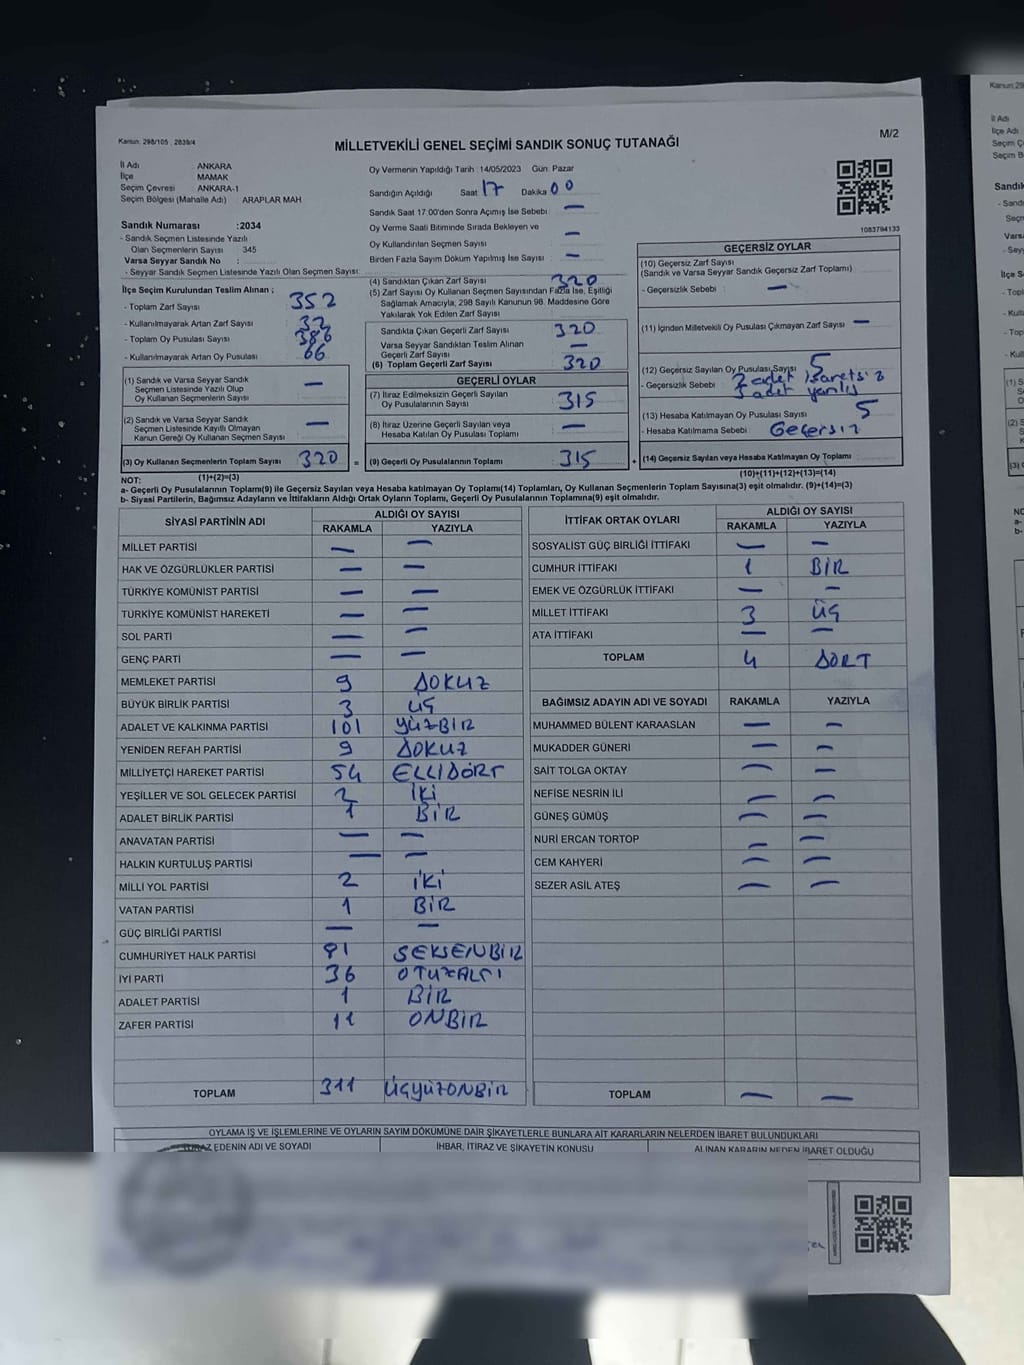 Kanun: 298/105 , 2839/4
MİLLETVEKİLİ GENEL SEÇİMİ SANDIK SONUÇ TUTANAĞI
M/2
İl Adı ANKARA
İlçe MAMAK
Seçim Çevresi ANKARA-1
Seçim Bölgesi (Mahalle Adı) ARAPLAR MAH
Oy Vermenin Yapıldığı Tarih :14/05/2023 Gün: Pazar
Sandığın Açıldığı Saat 17 Dakika 00
Sandık Saat 17:00'den Sonra Açılmış İse Sebebi: —
Oy Verme Saati Bitiminde Sırada Bekleyen ve
Oy Kullandırılan Seçmen Sayısı —
Birden Fazla Sayım Döküm Yapılmış İse Sayısı : —
1083794133
Sandık Numarası :2034
- Sandık Seçmen Listesinde Yazılı
Olan Seçmenlerin Sayısı 345
Varsa Seyyar Sandık No :
- Seyyar Sandık Seçmen Listesinde Yazılı Olan Seçmen Sayısı:
İlçe Seçim Kurulundan Teslim Alınan ;
- Toplam Zarf Sayısı 352
- Kullanılmayarak Artan Zarf Sayısı 32
- Toplam Oy Pusulası Sayısı 386
- Kullanılmayarak Artan Oy Pusulası 66
(1) Sandık ve Varsa Seyyar Sandık
Seçmen Listesinde Yazılı Olup
Oy Kullanan Seçmenlerin Sayısı —
(2) Sandık ve Varsa Seyyar Sandık
Seçmen Listesinde Kayıtlı Olmayan
Kanun Gereği Oy Kullanan Seçmen Sayısı —
(3) Oy Kullanan Seçmenlerin Toplam Sayısı 320 =
(1)+(2)=(3)
(4) Sandıktan Çıkan Zarf Sayısı 320
(5) Zarf Sayısı Oy Kullanan Seçmen Sayısından Fazla İse, Eşitliği
Sağlamak Amacıyla, 298 Sayılı Kanunun 98. Maddesine Göre
Yakılarak Yok Edilen Zarf Sayısı
Sandıkta Çıkan Geçerli Zarf Sayısı 320
Varsa Seyyar Sandıktan Teslim Alınan
Geçerli Zarf Sayısı —
(6) Toplam Geçerli Zarf Sayısı 320
GEÇERLİ OYLAR
(7) İtiraz Edilmeksizin Geçerli Sayılan
Oy Pusulalarının Sayısı 315
(8) İtiraz Üzerine Geçerli Sayılan veya
Hesaba Katılan Oy Pusulası Toplamı —
(9) Geçerli Oy Pusulalarının Toplamı 315 +
GEÇERSİZ OYLAR
(10) Geçersiz Zarf Sayısı
(Sandık ve Varsa Seyyar Sandık Geçersiz Zarf Toplamı)
- Geçersizlik Sebebi : —
(11) İçinden Milletvekili Oy Pusulası Çıkmayan Zarf Sayısı —
(12) Geçersiz Sayılan Oy Pusulası Sayısı 5
- Geçersizlik Sebebi : 2 adet işaretsiz
3 adet yanlış
(13) Hesaba Katılmayan Oy Pusulası Sayısı 5
- Hesaba Katılmama Sebebi : Geçersiz
(14) Geçersiz Sayılan veya Hesaba Katılmayan Oy Toplamı
(10)+(11)+(12)+(13)=(14)
NOT:
a- Geçerli Oy Pusulalarının Toplamı(9) ile Geçersiz Sayılan veya Hesaba Katılmayan Oy Toplamı(14) Toplamları, Oy Kullanan Seçmenlerin Toplam Sayısına(3) eşit olmalıdır. (9)+(14)=(3)
b- Siyasi Partilerin, Bağımsız Adayların ve İttifakların Aldığı Ortak Oyların Toplamı, Geçerli Oy Pusulalarının Toplamına(9) eşit olmalıdır.
SİYASİ PARTİNİN ADI ALDIĞI OY SAYISI
RAKAMLA YAZIYLA
MİLLET PARTİSİ — —
HAK VE ÖZGÜRLÜKLER PARTİSİ — —
TÜRKİYE KOMÜNİST PARTİSİ — —
TÜRKİYE KOMÜNİST HAREKETİ — —
SOL PARTİ — —
GENÇ PARTİ — —
MEMLEKET PARTİSİ 9 DOKUZ
BÜYÜK BİRLİK PARTİSİ 3 ÜÇ
ADALET VE KALKINMA PARTİSİ 101 YÜZBİR
YENİDEN REFAH PARTİSİ 9 DOKUZ
MİLLİYETÇİ HAREKET PARTİSİ 54 ELLİDÖRT
YEŞİLLER VE SOL GELECEK PARTİSİ 2 İKİ
ADALET BİRLİK PARTİSİ 1 BİR
ANAVATAN PARTİSİ — —
HALKIN KURTULUŞ PARTİSİ — —
MİLLİ YOL PARTİSİ 2 İKİ
VATAN PARTİSİ 1 BİR
GÜÇ BİRLİĞİ PARTİSİ — —
CUMHURİYET HALK PARTİSİ 81 SEKSENBİR
İYİ PARTİ 36 OTUZALTI
ADALET PARTİSİ 1 BİR
ZAFER PARTİSİ 11 ONBİR
TOPLAM 311 ÜÇYÜZONBİR
İTTİFAK ORTAK OYLARI ALDIĞI OY SAYISI
RAKAMLA YAZIYLA
SOSYALİST GÜÇ BİRLİĞİ İTTİFAKI — —
CUMHUR İTTİFAKI 1 BİR
EMEK VE ÖZGÜRLÜK İTTİFAKI — —
MİLLET İTTİFAKI 3 ÜÇ
ATA İTTİFAKI — —
TOPLAM 4 DÖRT
BAĞIMSIZ ADAYIN ADI VE SOYADI RAKAMLA YAZIYLA
MUHAMMED BÜLENT KARAASLAN — —
MUKADDER GÜNERİ — —
SAİT TOLGA OKTAY — —
NEFİSE NESRİN İLİ — —
GÜNEŞ GÜMÜŞ — —
NURİ ERCAN TORTOP — —
CEM KAHYERİ — —
SEZER ASİL ATEŞ — —
TOPLAM — —
OYLAMA İŞ VE İŞLEMLERİNE VE OYLARIN SAYIM DÖKÜMÜNE DAİR ŞİKAYETLERLE BUNLARA AİT KARARLARIN NELERDEN İBARET BULUNDUKLARI
EDENİN ADI VE SOYADI İHBAR, İTİRAZ VE ŞİKAYETİN KONUSU ALINAN KARARIN NEDEN İBARET OLDUĞU